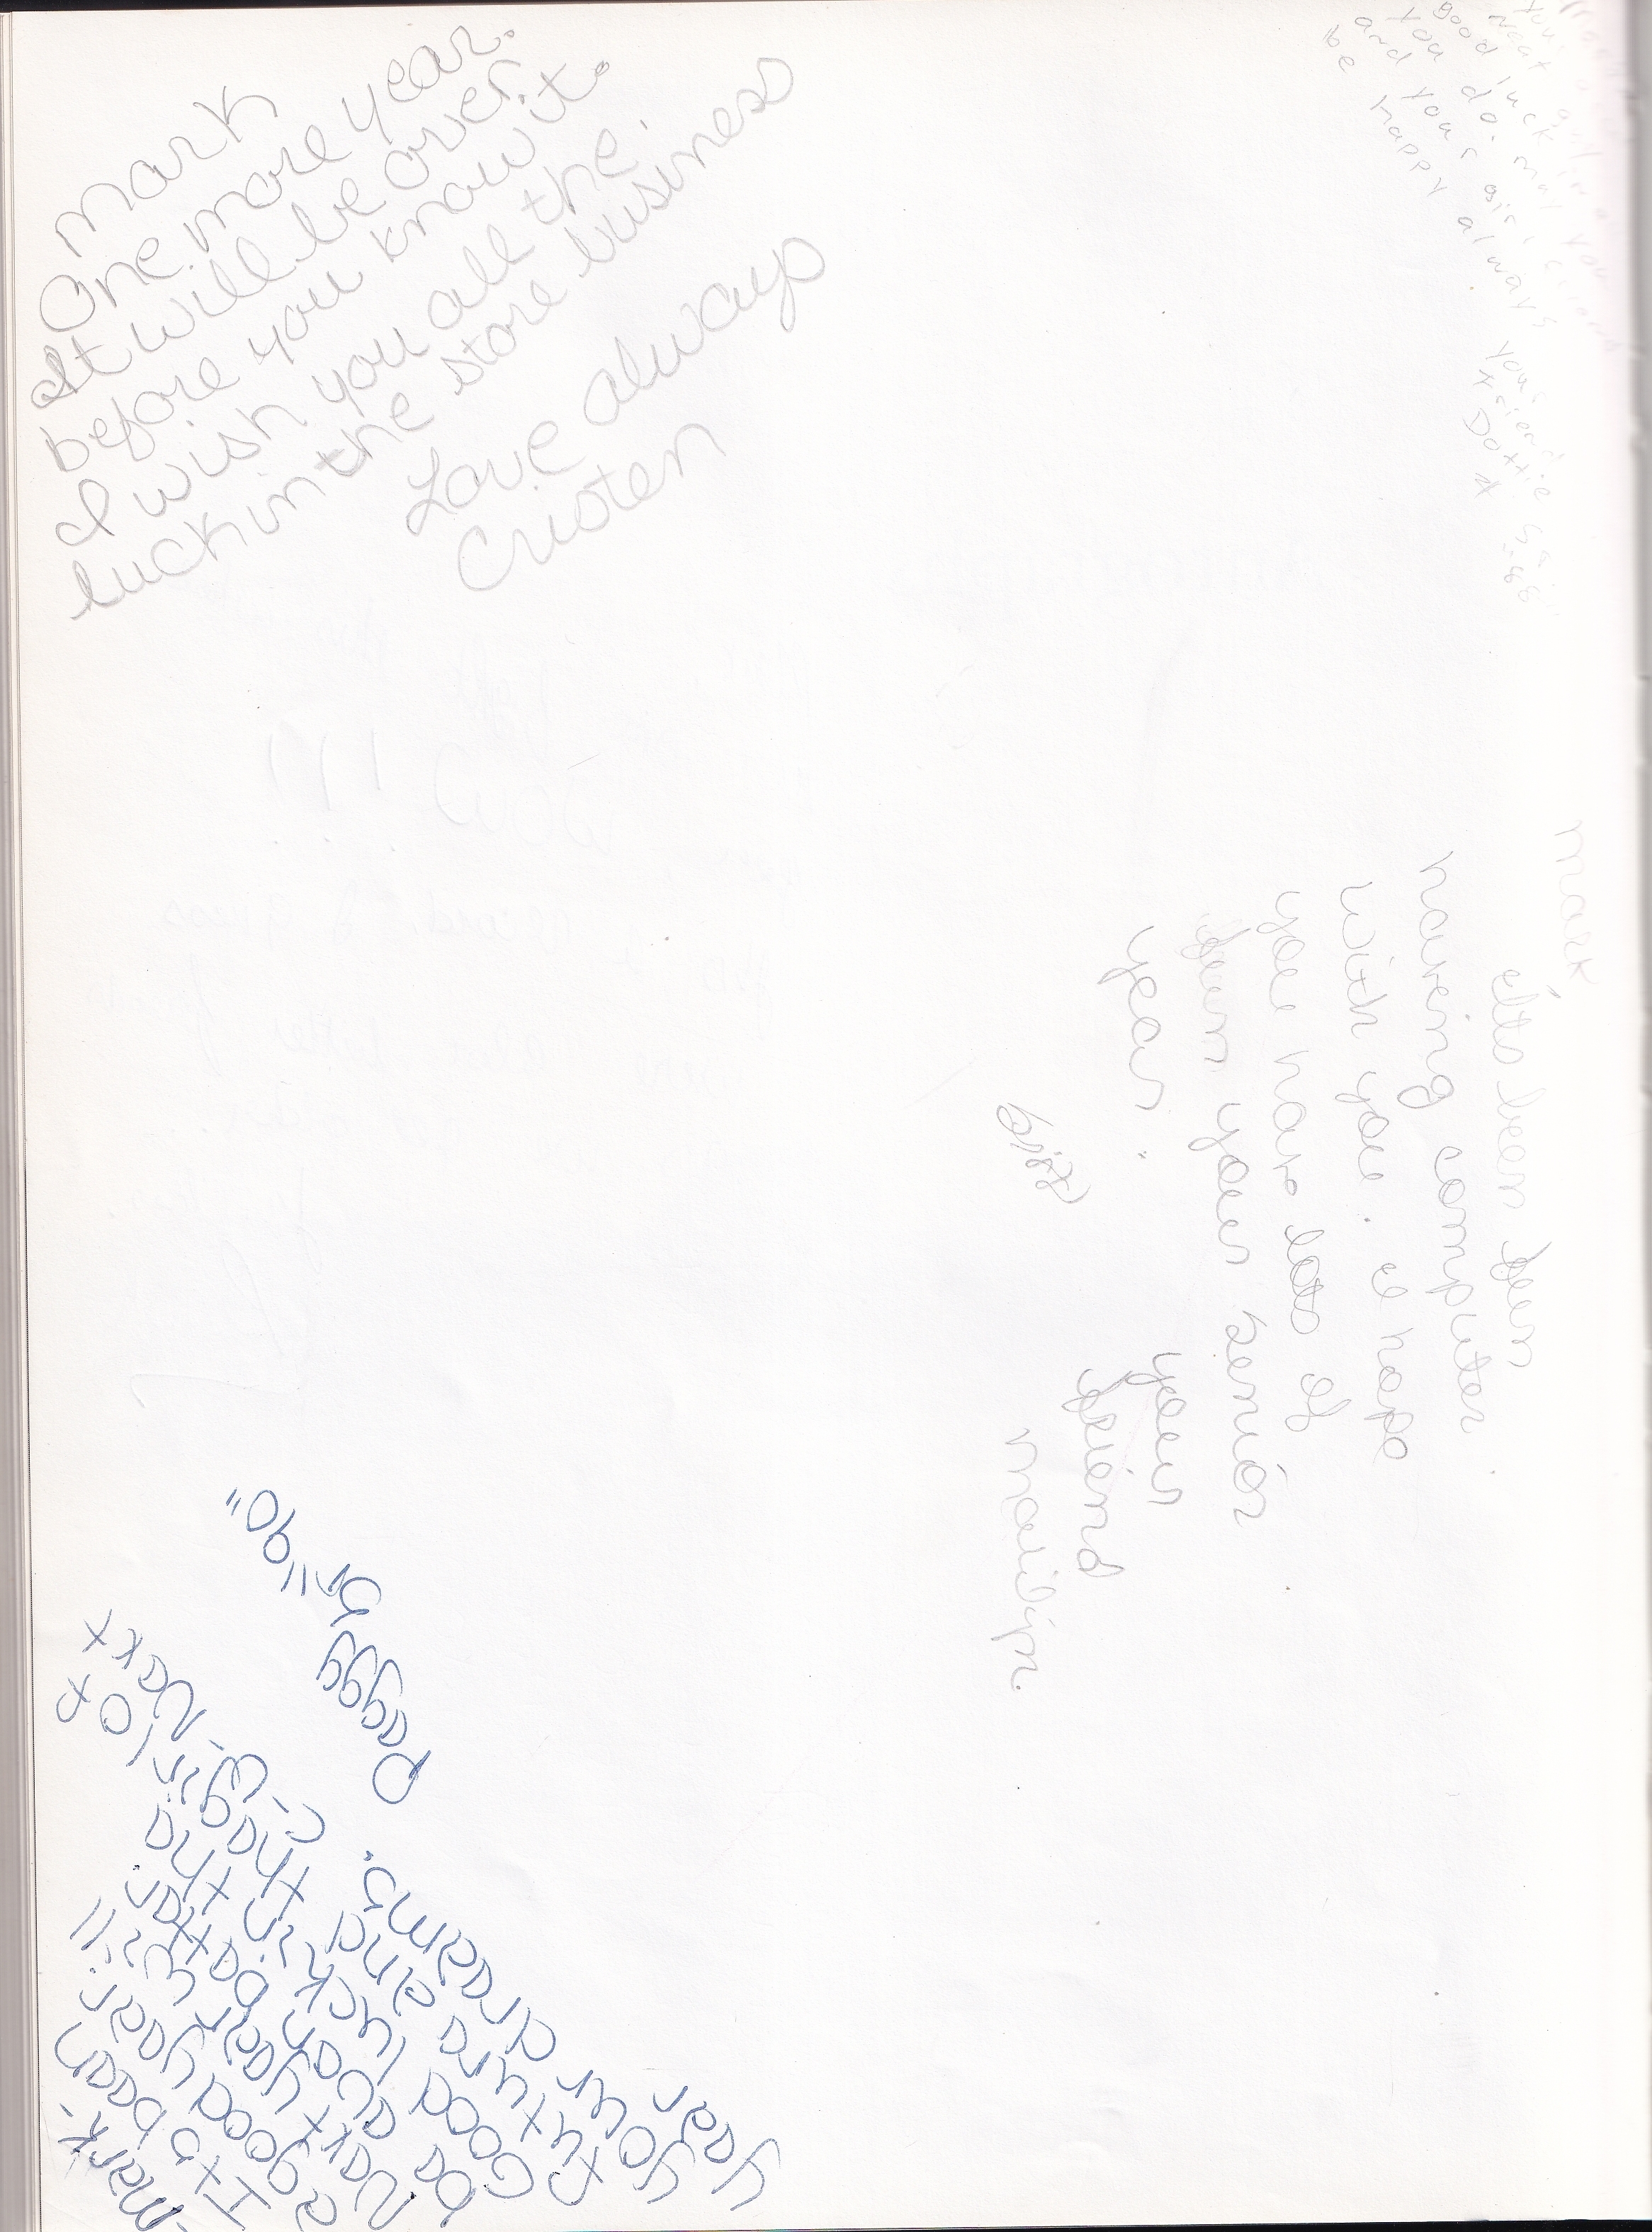 mark
One more year.
It will be over
before you know it.
I wish you all the
luck in the store business
Love always
Cristen
good luck
you do. may you
and your
be happy always
Your
* Dottie *
mark
Its been fun
haveing computer
with you. I hope
you have lots of
fun your senior
year.
your
friend
Marilyn.
-Mark-
It's been
a good year.
Next year will
be even better.
Good luck in the
future and the girl of
your dreams.
Next
year
Peggy S. "90"